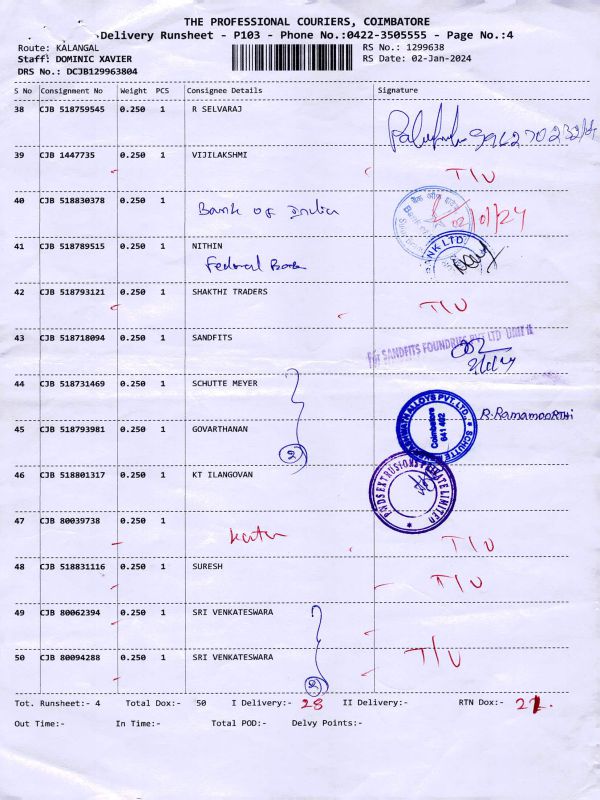 THE PROFESSIONAL COURIERS, COIMBATORE
Delivery Runsheet - P103 - Phone No.:0422-3505555 - Page No.:4
Route: KALANGAL RS No.: 1299638
Staff: DOMINIC XAVIER RS Date: 02-Jan-2024
DRS No.: DCJB129963804
S No Consignment No Weight PCS Consignee Details Signature
38 CJB 518759545 0.250 1 R SELVARAJ
39 CJB 1447735 0.250 1 VIJILAKSHMI T/U
40 CJB 518830378 0.250 1 Bank of India 02/01/24
41 CJB 518789515 0.250 1 NITHIN
Federal Bank
BANK LTD.
42 CJB 518793121 0.250 1 SHAKTHI TRADERS T/U
43 CJB 518718094 0.250 1 SANDFITS
For SANDFITS FOUNDRIES PVT LTD UNIT II
44 CJB 518731469 0.250 1 SCHUTTE MEYER
ALLOYS PVT. LTD. * SCHUTTE
Coimbatore
641 402
R. RAMAMOORTHI
45 CJB 518793981 0.250 1 GOVARTHANAN
2
46 CJB 518801317 0.250 1 KT ILANGOVAN
EXTRUSIONS PRIVATE LIMITED
47 CJB 80039738 0.250 1 T/U
48 CJB 518831116 0.250 1 SURESH T/U
49 CJB 80062394 0.250 1 SRI VENKATESWARA
T/U
50 CJB 80094288 0.250 1 SRI VENKATESWARA
2
Tot. Runsheet:- 4 Total Dox:- 50 I Delivery:- 28 II Delivery:- RTN Dox:- 22.
Out Time:- In Time:- Total POD:- Delvy Points:-